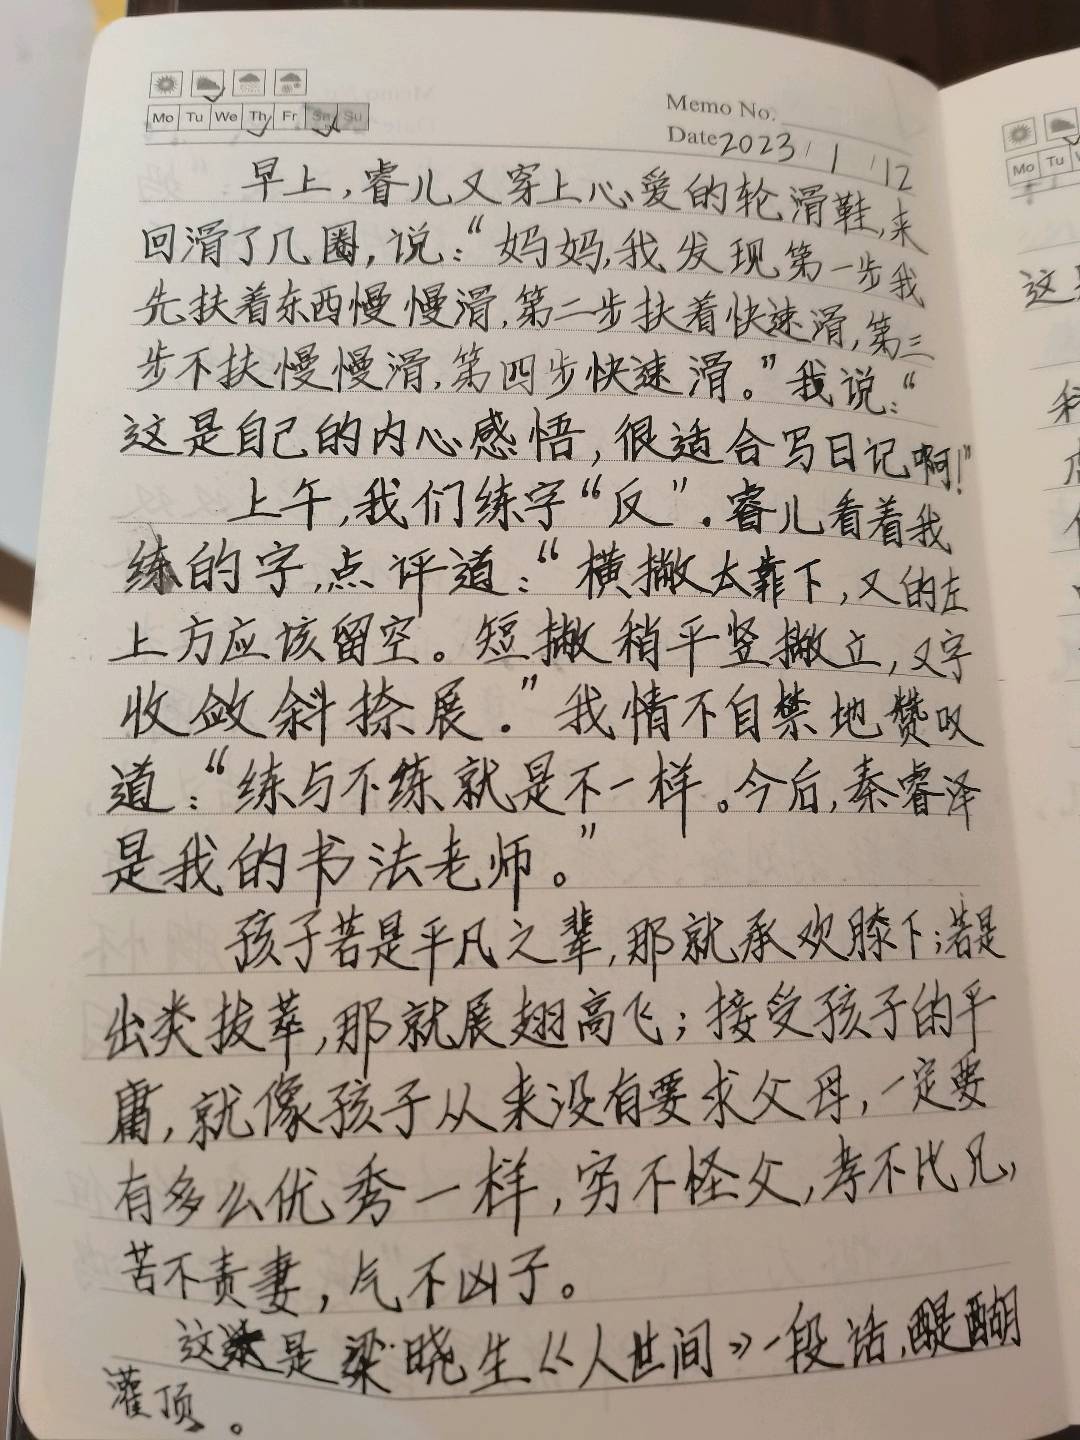 Mo Tu We Th Fr Sa Su
Memo No.
Date 2023 / 1 / 12
早上，睿儿又穿上心爱的轮滑鞋，来
回滑了几圈，说：“妈妈，我发现第一步我
先扶着东西慢慢滑，第二步扶着快速滑，第三
步不扶慢慢滑，第四步快速滑。”我说：“
这是自己的内心感悟，很适合写日记啊！”
上午，我们练字“反”。睿儿看着我
练的字，点评道：“横撇太靠下，又的左
上方应该留空。短撇稍平竖撇立，又字
收敛斜捺展。”我情不自禁地赞叹
道：“练与不练就是不一样。今后，秦睿泽
是我的书法老师。”
孩子若是平凡之辈，那就承欢膝下；若是
出类拔萃，那就展翅高飞；接受孩子的平
庸，就像孩子从来没有要求父母，一定要
有多么优秀一样，穷不怪父，孝不比兄，
苦不责妻，气不凶子。
这是梁晓生《人世间》一段话，醍醐
灌顶。
Mo Tu
这